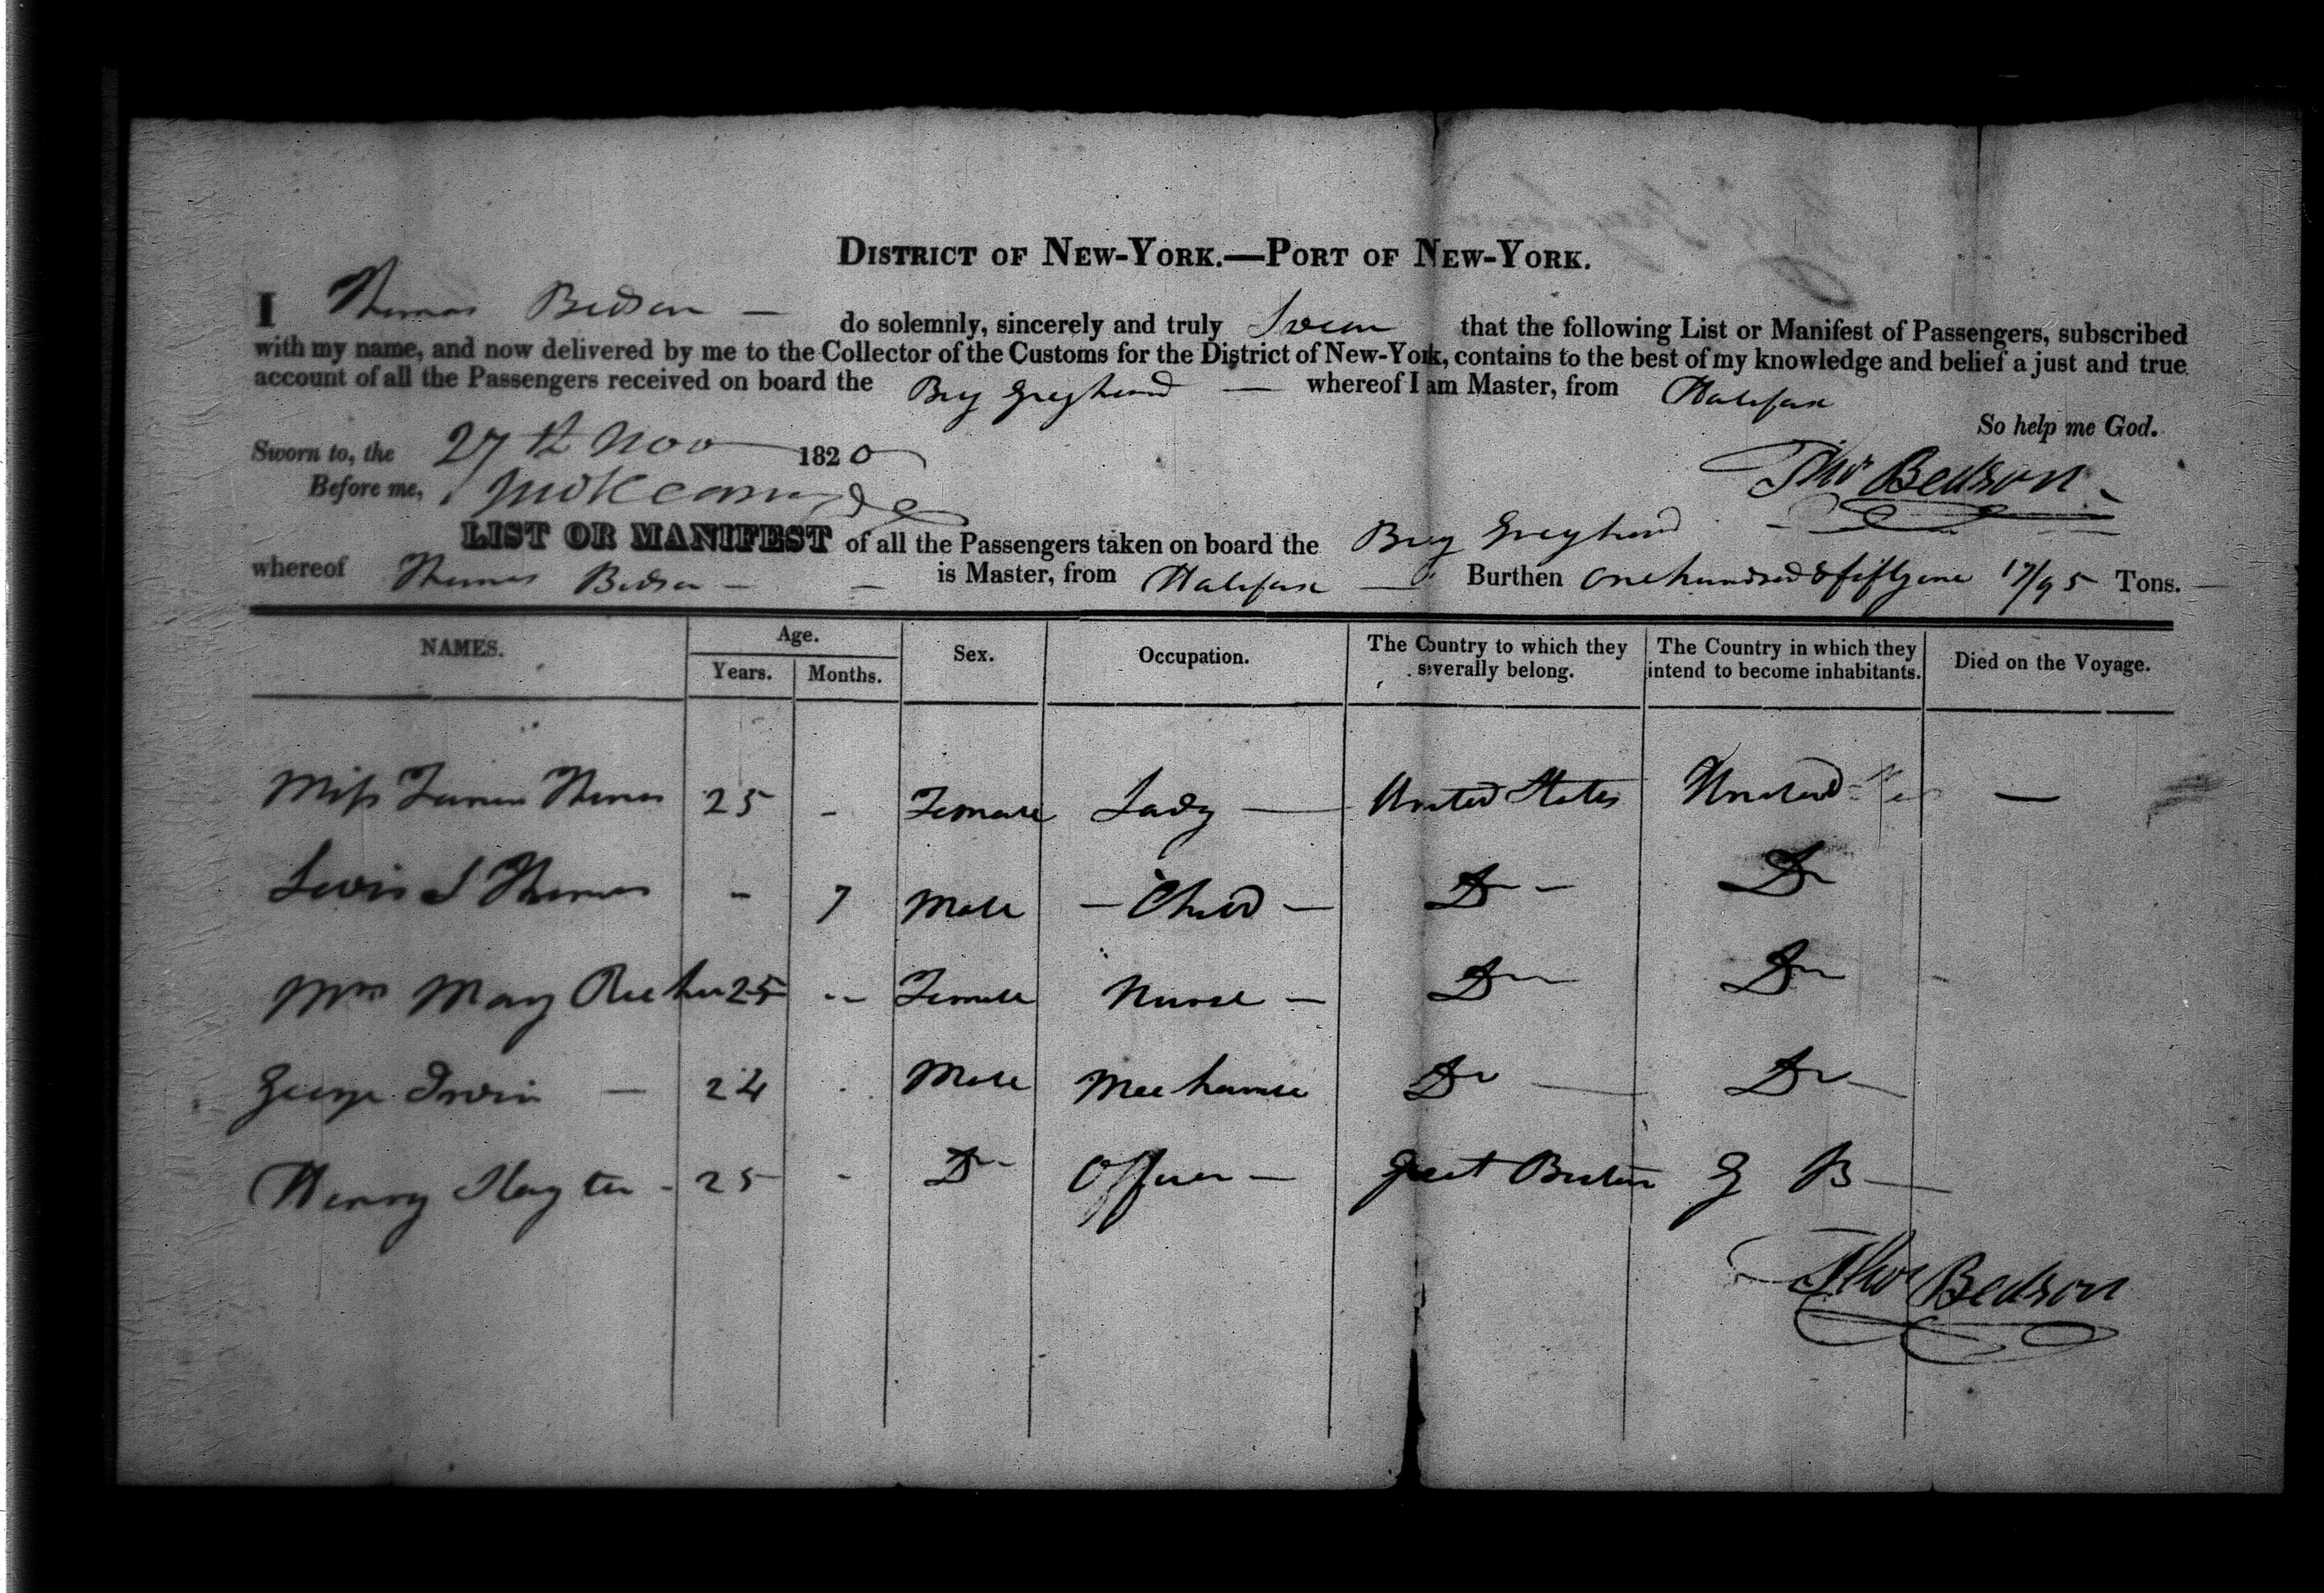 DISTRICT OF NEW-YORK.—PORT OF NEW-YORK.
I Thomas Bedson — do solemnly, sincerely and truly Swear that the following List or Manifest of Passengers, subscribed
with my name, and now delivered by me to the Collector of the Customs for the District of New-York, contains to the best of my knowledge and belief a just and true
account of all the Passengers received on board the Brig Greyhound — whereof I am Master, from Halifax
So help me God.
Sworn to, the 27th Nov 1820
Thos Bedson
Before me,
LIST OR MANIFEST of all the Passengers taken on board the Brig Greyhound
whereof Thomas Bedson — is Master, from Halifax — Burthen One hundred & fifty one 17/95 Tons.
NAMES. Age. Sex. Occupation. The Country to which they severally belong. The Country in which they intend to become inhabitants. Died on the Voyage.
Years. Months.
Miss Thomas 25 - Female Lady — United States United —
Lewis S Thomas - 7 Male — Child — Do — Do
Mrs Mary 25 - Female Nurse — Do Do
George Irvin — 24 - Male Mechanic Do — Do —
Henry Hayter - 25 - Do Officer — Great Britain G B —
Thos Bedson